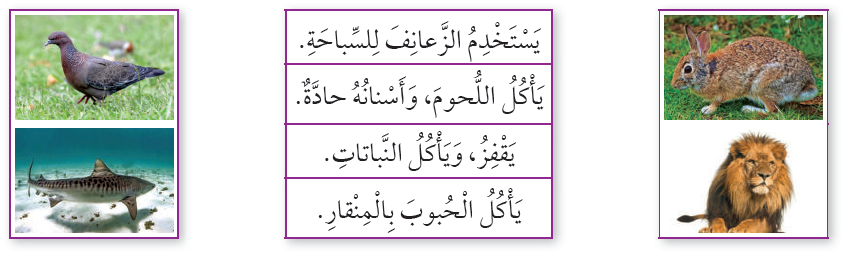 يَسْتَخْدِمُ الزَّعانِفَ لِلسِّباحَةِ.
يَأْكُلُ اللُّحومَ، وَأَسْنانُهُ حادَّةٌ.
يَقْفِزُ، وَيَأْكُلُ النَّباتاتِ.
يَأْكُلُ الْحُبوبَ بِالْمِنْقارِ.